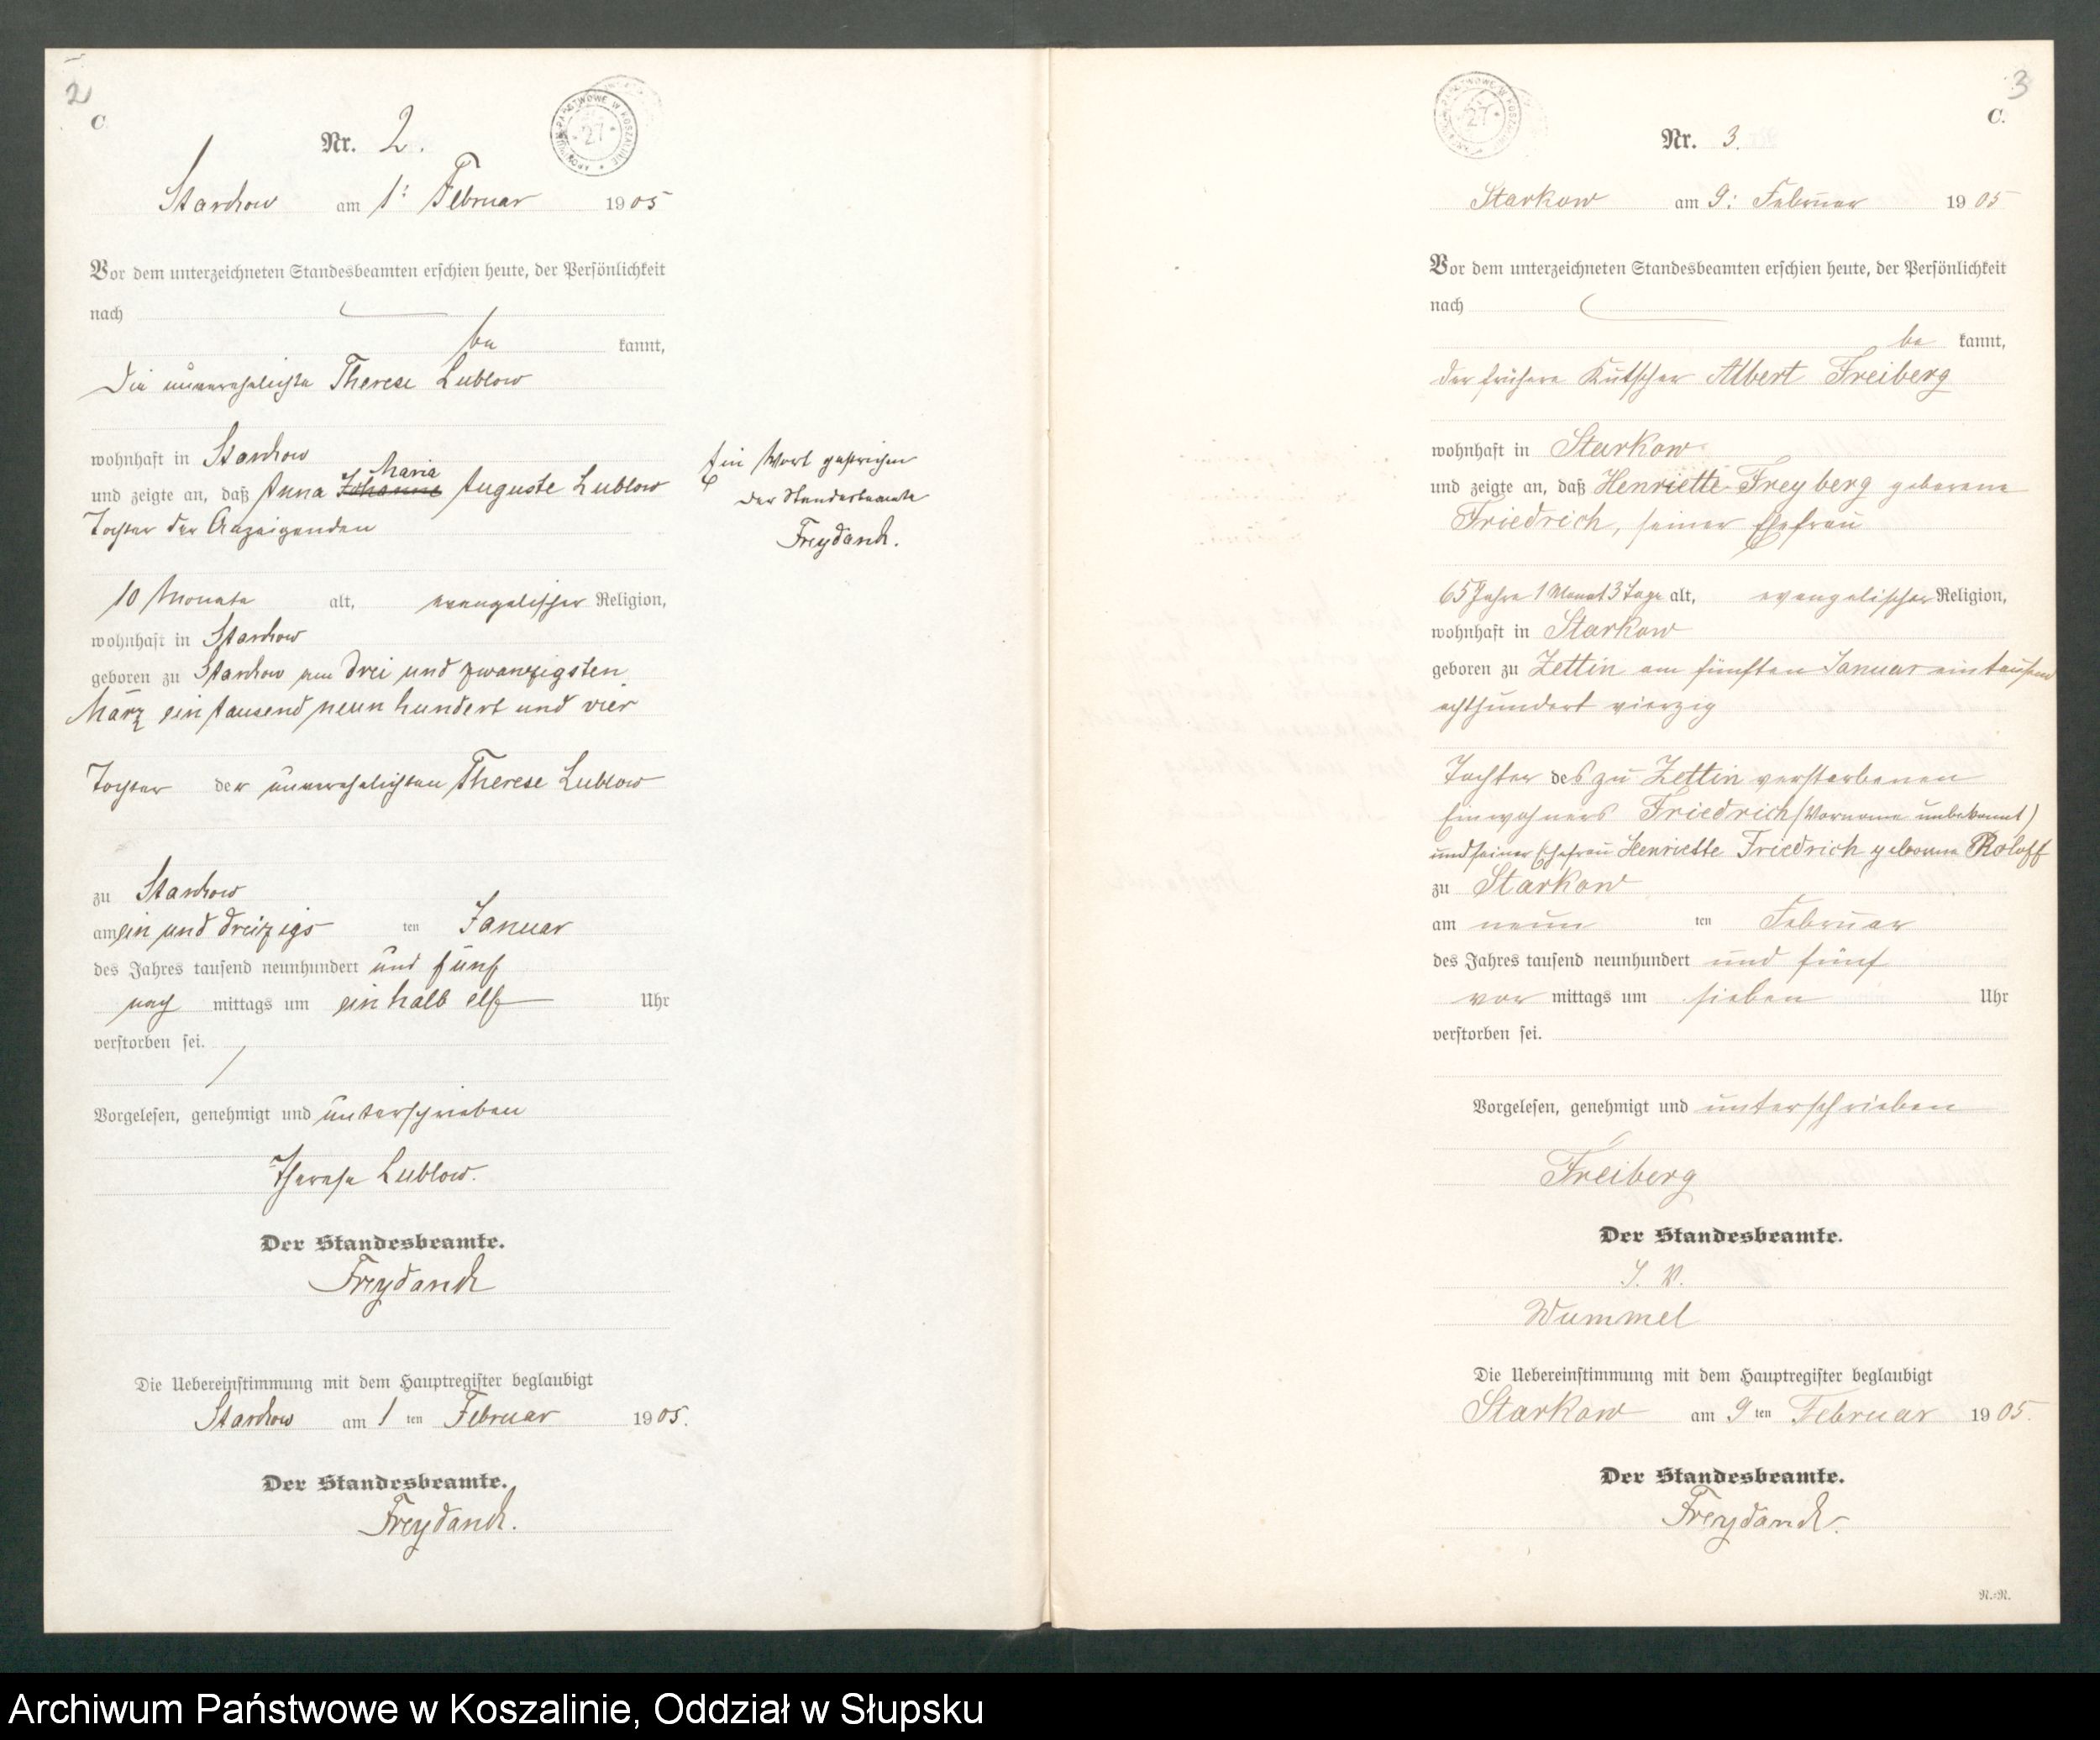 2
C.
Nr. 2.
ARCHIWUM PAŃSTWOWE W KOSZALINIE
27
Starkow am 1: Februar 1905
Vor dem unterzeichneten Standesbeamten erschien heute, der Persönlichkeit
nach
be kannt,
die unverehelichte Therese Lublow
wohnhaft in Starkow
Maria
und zeigte an, daß Anna Johanne Auguste Lublow
Tochter der Anzeigenden
10 Monate alt, evangelischer Religion,
wohnhaft in Starkow
geboren zu Starkow am drei und zwanzigsten
März ein tausend neun hundert und vier
Tochter der unverehelichten Therese Lublow
zu Starkow
am ein und dreizigs ten Januar
des Jahres tausend neunhundert und fünf
nach mittags um ein halb elf Uhr
verstorben sei.
Vorgelesen, genehmigt und unterschrieben
Therese Lublow.
Der Standesbeamte.
Freydanck
Die Uebereinstimmung mit dem Hauptregister beglaubigt
Starkow am 1 ten Februar 1905.
Der Standesbeamte.
Freydanck.
Ein Wort gestrichen
Der Standesbeamte
Freydanck.
3
C.
Nr. 3.
27
Starkow am 9: Februar 1905
Vor dem unterzeichneten Standesbeamten erschien heute, der Persönlichkeit
nach
be kannt,
der frühere Kutscher Albert Freiberg
wohnhaft in Starkow
und zeigte an, daß Henriette Freyberg geborene
Friedrich, seiner Ehefrau
65 Jahre 1 Monat 3 Tage alt, evangelischer Religion,
wohnhaft in Starkow
geboren zu Zettin am fünften Januar ein tausend
achthundert vierzig
Tochter des zu Zettin verstorbenen
Einwohners Friedrich (Vorname unbekannt)
und seiner Ehefrau Henriette Friedrich geborne Roloff
zu Starkow
am neun ten Februar
des Jahres tausend neunhundert und fünf
vor mittags um sieben Uhr
verstorben sei.
Vorgelesen, genehmigt und unterschrieben
Freiberg
Der Standesbeamte.
I. V.
Wummel
Die Uebereinstimmung mit dem Hauptregister beglaubigt
Starkow am 9 ten Februar 1905.
Der Standesbeamte.
Freydanck.
N.-N.
Archiwum Państwowe w Koszalinie, Oddział w Słupsku